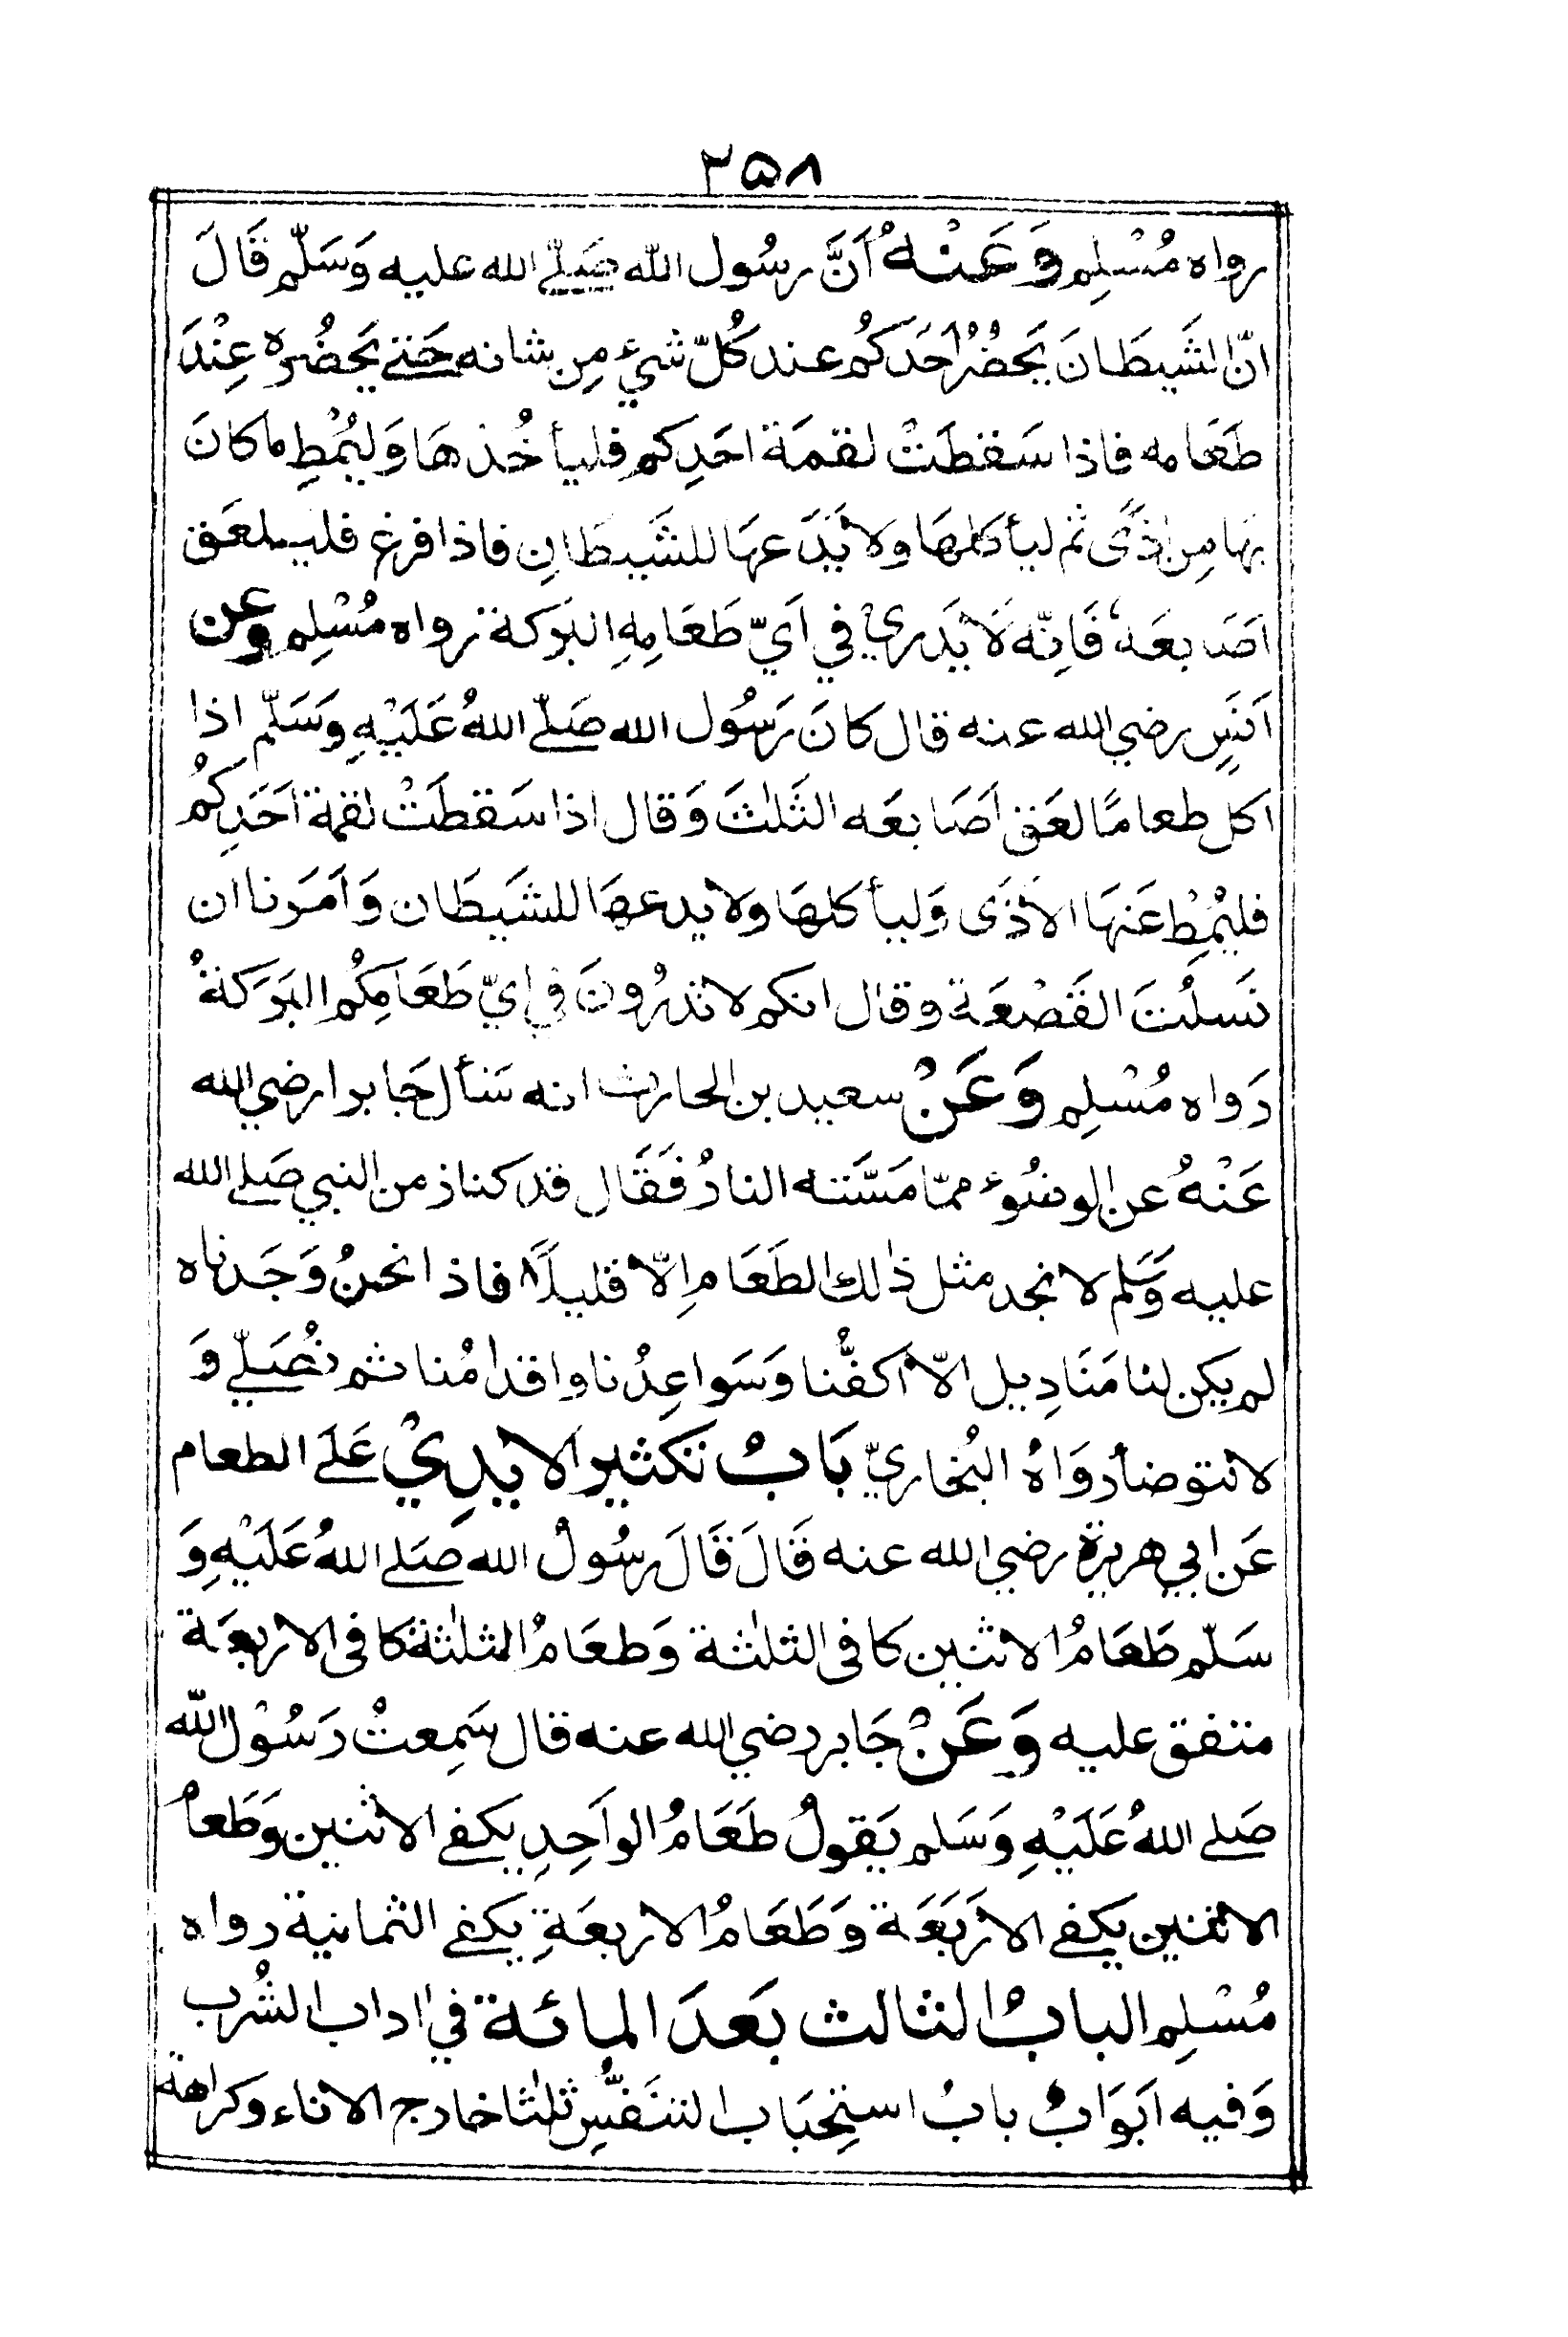 ٢٥٨
رواه مُسْلِم وَعَنْهُ أَنَّ رسُول اللّه صَلّے الله عليه وَسَلّم قَالَ
انّ الشَيطَانَ يَحضُرُ اَحَدَكُم عند كُلّ شيء مِن شانه حَتے يَحضُره عِنْدَ
طَعَامه فاذا سَقطَتْ لقمَة احَدِكم فليأخُذهَا وَليُمْطِ ما كانَ
بهَا مِن اذًى ثم ليأكلهَا ولا يَدَعهَا للشَيطَانِ فاذا فرغ فليلعَق
اصَابعَهُ فَاِنّه لَا يَدَري في اَيّ طَعَامِهِ البَركة رواه مُسْلِم وعن
اَنَسٍ رضي الله عنه قال كانَ رَسُول الله صَلّے اللهُ عَلَيْهِ وَسَلّم اذا
اكل طعامًا لعَق اَصَابعَه الثَلٰثَ وَقال اذا سَقطَتْ لقمة اَحَدِكُم
فليُمْطِ عَنهَا الاَذَى وَليأكلهَا ولا يدعهَا للشَيطَان وَاَمَرنا ان
نَسلُتَ القَصْعَة وقال انكم لا تدرُونَ في ايّ طَعَامِكُم البَرَكةُ
رَواه مُسْلِم وَعَنْ سعيد بن الحارث انه سَأل جَابرا رضي الله
عَنْهُ عن الوضُوء ممّا مَسَّته النارُ فَقَال قد كنا زمن النبي صَلے الله
عليه وَسَلم لا نجد مثل ذٰلك الطَعَام اِلّا قليلًا فاذا نحنُ وَجَدناه
لم يكن لنا مَنَادِيل الّا اَكفُّنا وَسَواعِدُنا واقدامُنا ثم نُصَلّے وَ
لا نتوضأ رَوَاهُ البُخاريّ بَابُ تكثير الايْدِيْ عَلَے الطعام
عَن ابي هريرة رضي الله عنه قَالَ قَالَ رسُولُ الله صَلے اللهُ عَلَيْهِ وَ
سَلّم طَعَامُ الاثنين كافى الثلٰثة وَطعَامُ الثلٰثة كافى الاربعَة
متفق عليه وَعَنْ جَابر رضي الله عنه قال سَمِعتْ رَسُوْل اللّه
صَلے اللهُ عَلَيْهِ وَسَلم يَقولُ طَعَامُ الواحِدِ يكفے الاثنين وَطَعامُ
الاثنين يكفے الارَبَعَة وَطَعَامُ الاربعَةِ يكفے الثمانية رواه
مُسْلِم البابُ الثالث بَعدَ المائة في اداب الشُرب
وَفيه ابَوَابٌ بابُ استِحبَاب التنَفُّسِ ثلٰثا خارج الاناء وكراهة